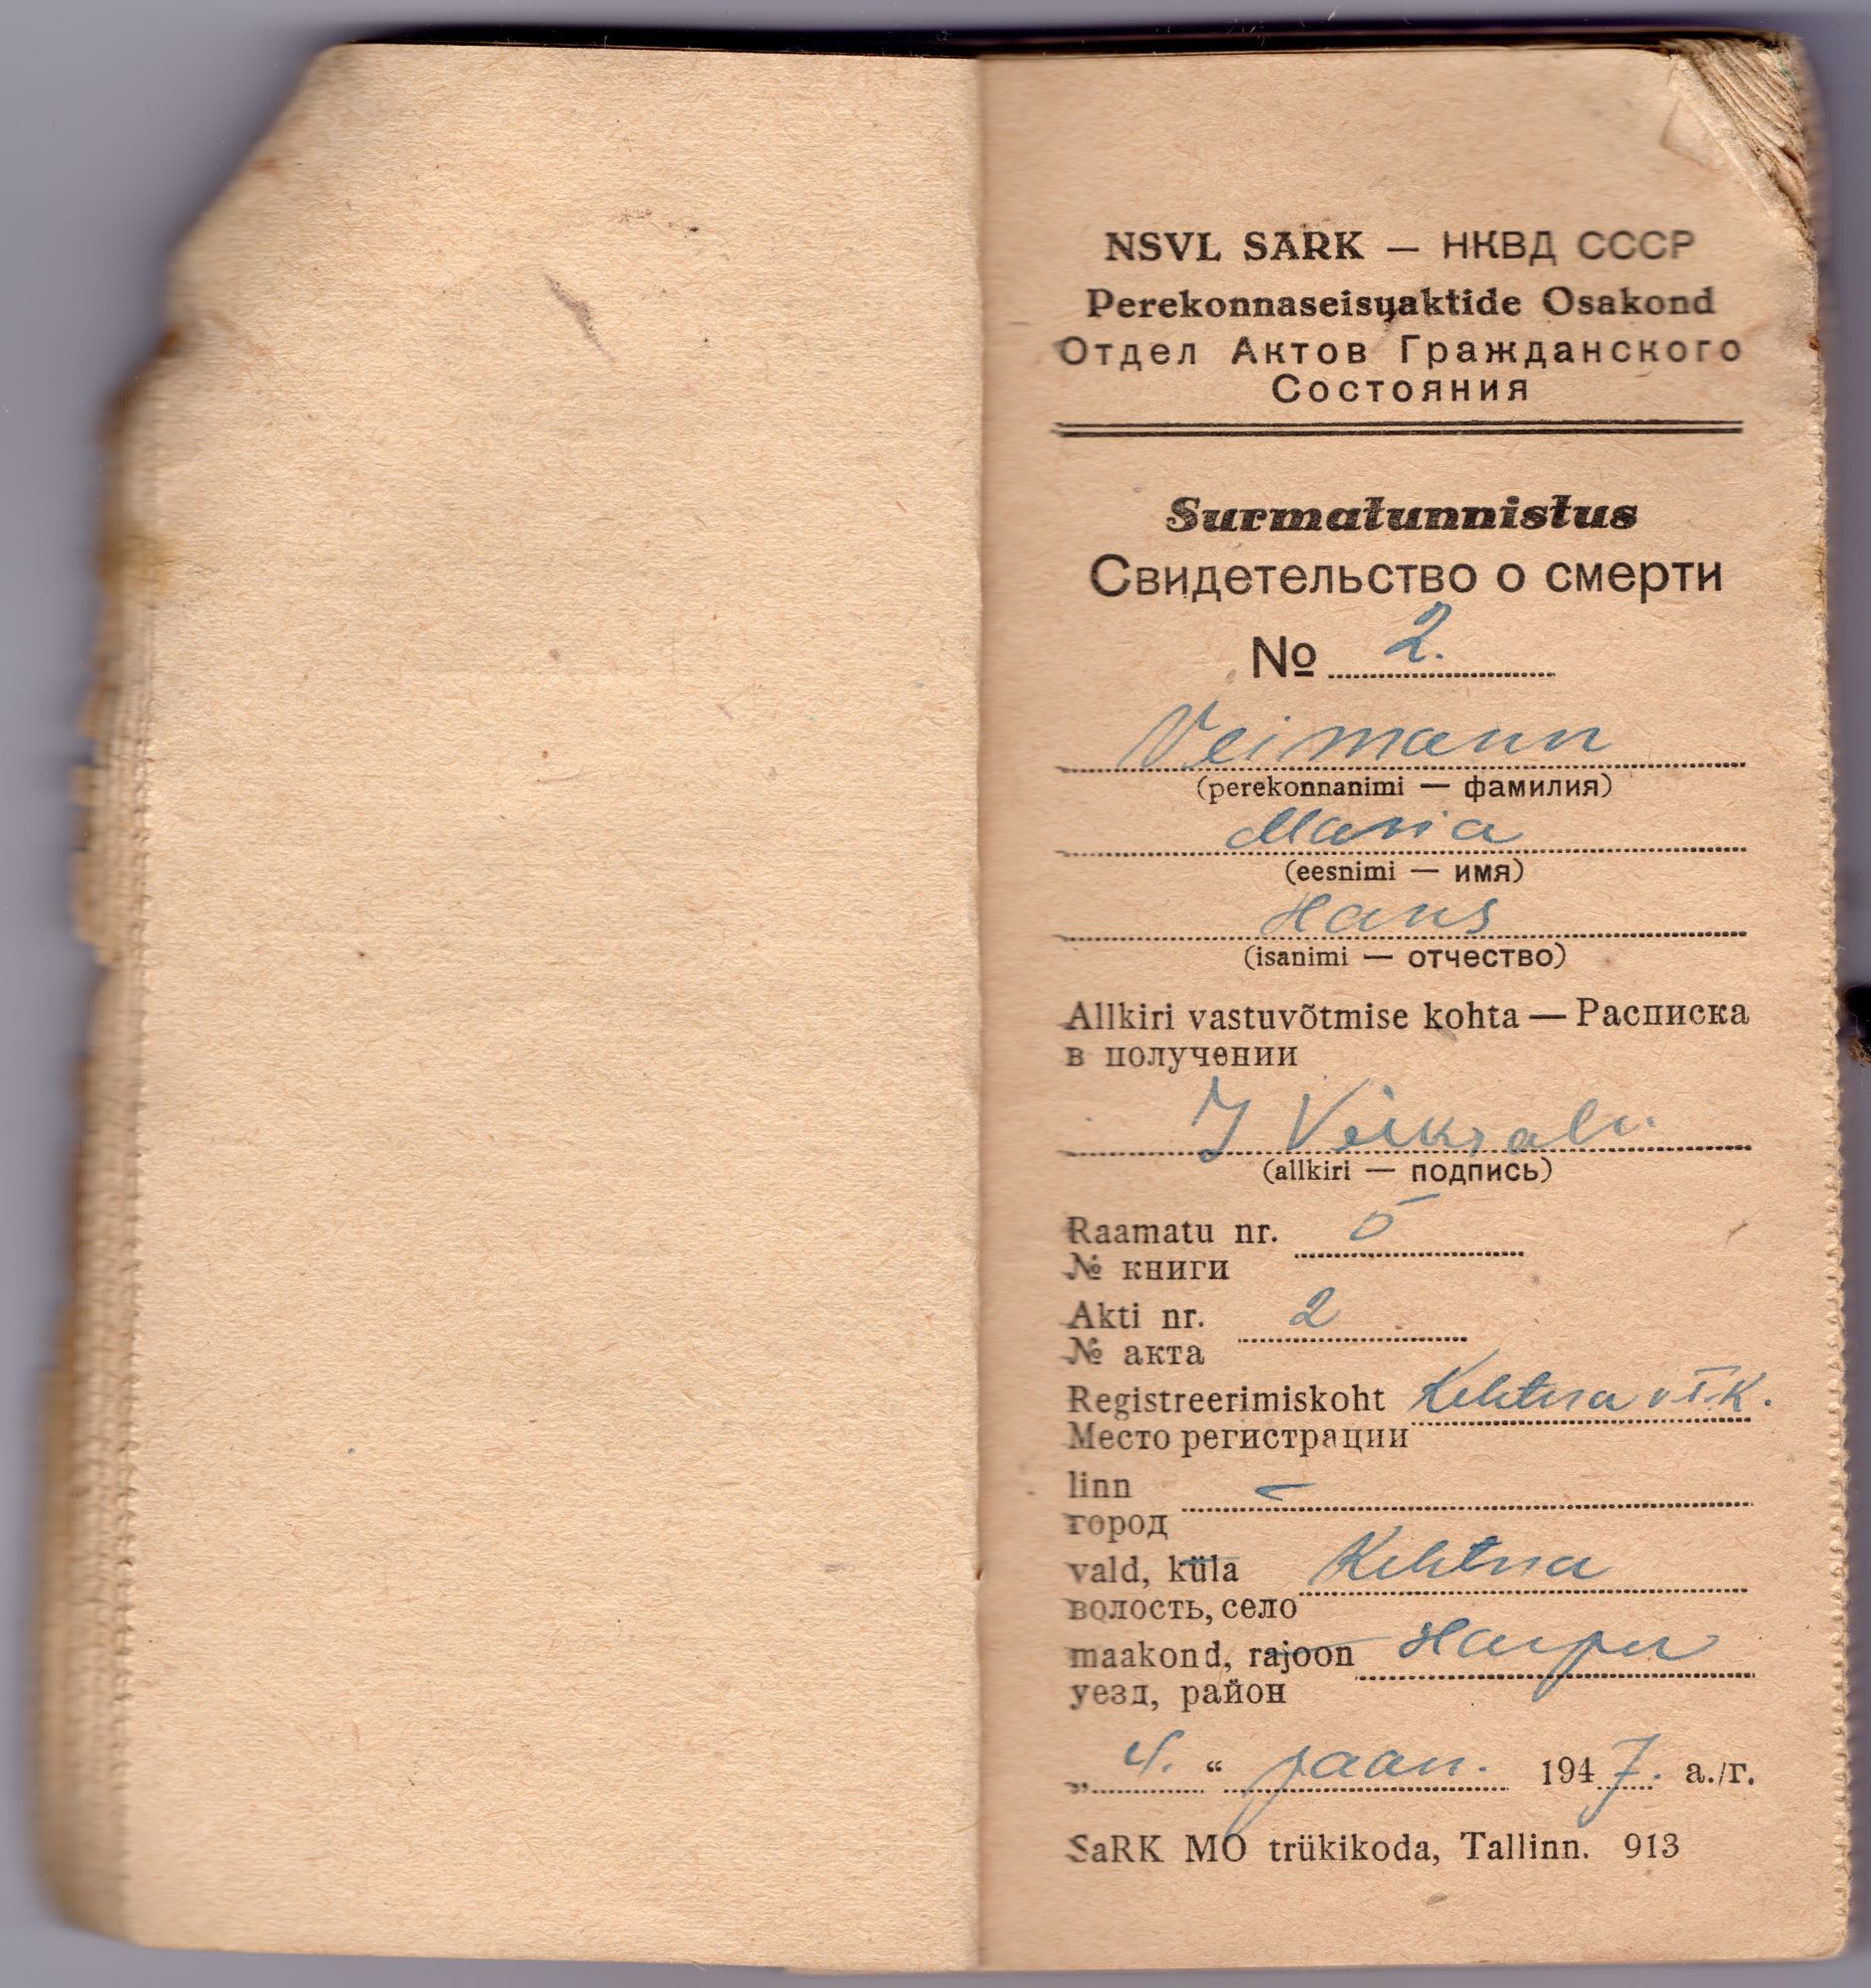 NSVL SARK — НКВД СССР
Perekonnaseisuaktide Osakond
Отдел Актов Гражданского
Состояния
Surmatunnistus
Свидетельство о смерти
№ 2.
Veimann
(perekonnanimi — фамилия)
Maria
(eesnimi — имя)
Hans
(isanimi — отчество)
Allkiri vastuvõtmise kohta — Расписка
в получении
(allkiri — подпись)
Raamatu nr. 5
№ книги
Akti nr. 2
№ акта
Registreerimiskoht Kehtna v.T.K.
Место регистрации
linn –
город
vald, küla Kehtna
волость, село
maakond, rajoon Harju
уезд, район
„ 4. “ jaan. 1947. а./г.
SaRK MO trükikoda, Tallinn. 913